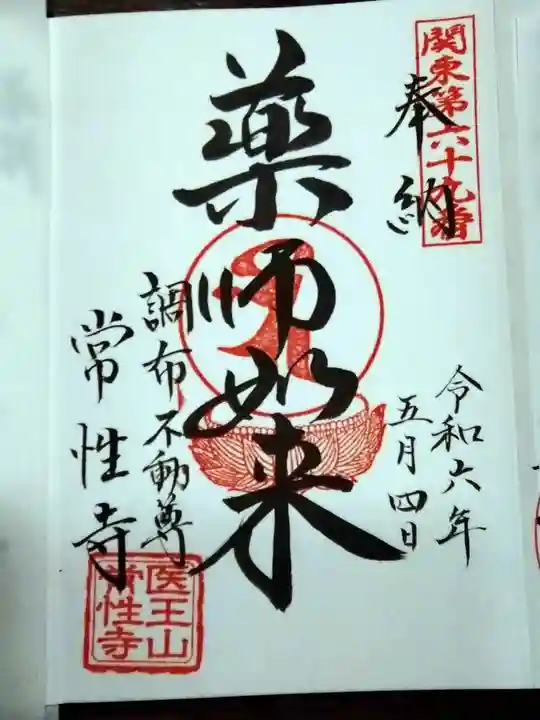 関東第六十九番
奉納
令和六年
五月四日
薬師如来
調布不動尊
常性寺
医王山
常性寺